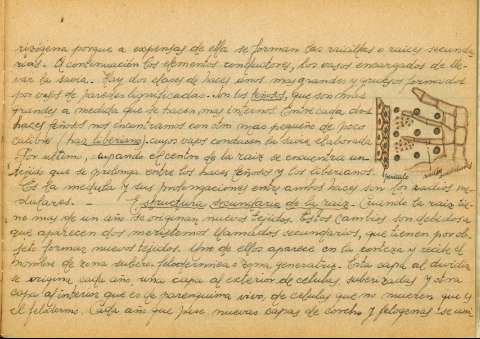 rizógena porque a expensas de ella se forman las raicillas o raices secunda-
rias. A continuación los elementos conductores, los vasos encargados de lle-
var la savia. Hay dos clases de haces unos mas grandes y gruesos formados
por vasos de paredes lignificadas. Son los leñosos, que son mas
grandes a medida que se hacen mas internos. Entre cada dos
haces leñosos nos encontramos con otro mas pequeño de poco
calibre (haz liberiano) cuyos vasos conducen la savia elaborada
Por ultimo, ocupando el centro de la raiz se encuentra un
tejido que se prolonga entre los haces leñosos y los liberianos.
Es la medula y sus prolongaciones entre ambos haces son los radios me-
dulares. - Estructura secundaria de la raiz. Cuando la raiz tie-
ne mas de un año se originan nuevos tejidos. Estos cambios son debidos a
que aparecen dos meristemos llamados secundarios, que tienen por ob-
jeto formar nuevos tejidos. Uno de ellos aparece en la corteza y recibe el
nombre de zona subero felodermica o zona generatriz. Esta capa al dividirse
se origina cada año, una capa al exterior de celulas suberizadas y otra
capa al interior que es de parenquima vivo, de celulas que no mueren que es
el felodermo. Cada año que pase nuevas capas de corcho y felogenas se van